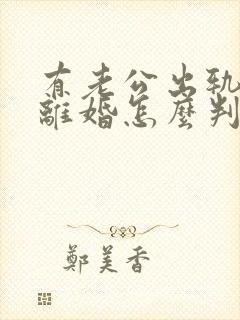 有老公出轨
離婚怎麼判
鄭美香